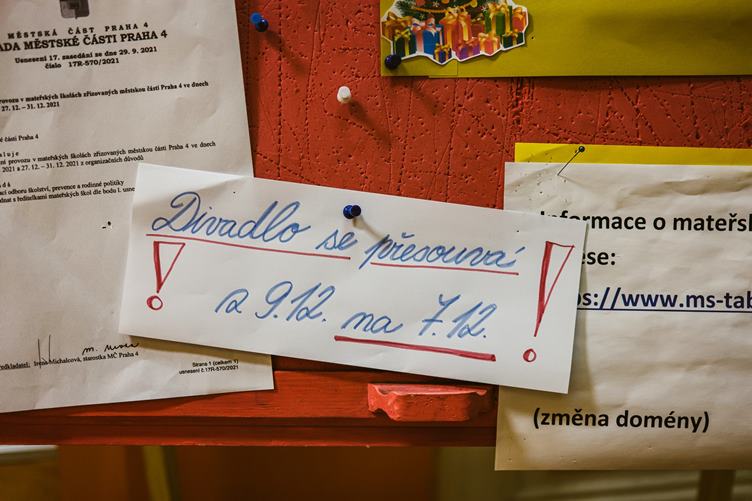 MĚSTSKÁ ČÁST PRAHA 4
RADA MĚSTSKÉ ČÁSTI PRAHA 4
Usnesení 17. zasedání ze dne 29. 9. 2021
číslo 17R-570/2021
provozu v mateřských školách zřizovaných městskou částí Praha 4 ve dnech
27. 12. – 31. 12. 2021
části Praha 4
provozu v mateřských školách zřizovaných městskou částí Praha 4 ve dnech
2021 a 27. 12. – 31. 12. 2021 z organizačních důvodů
odboru školství, prevence a rodinné politiky
s ředitelkami mateřských škol dle bodu I. usne
Předkladatel: Irena Michalcová, starostka MČ Praha 4
Strana 1 (celkem 1)
usnesení č.17R-570/2021
Divadlo se přesouvá
! z 9.12. na 7.12. !
Informace o mateřsk
ese:
ps://www.ms-tab
(změna domény)